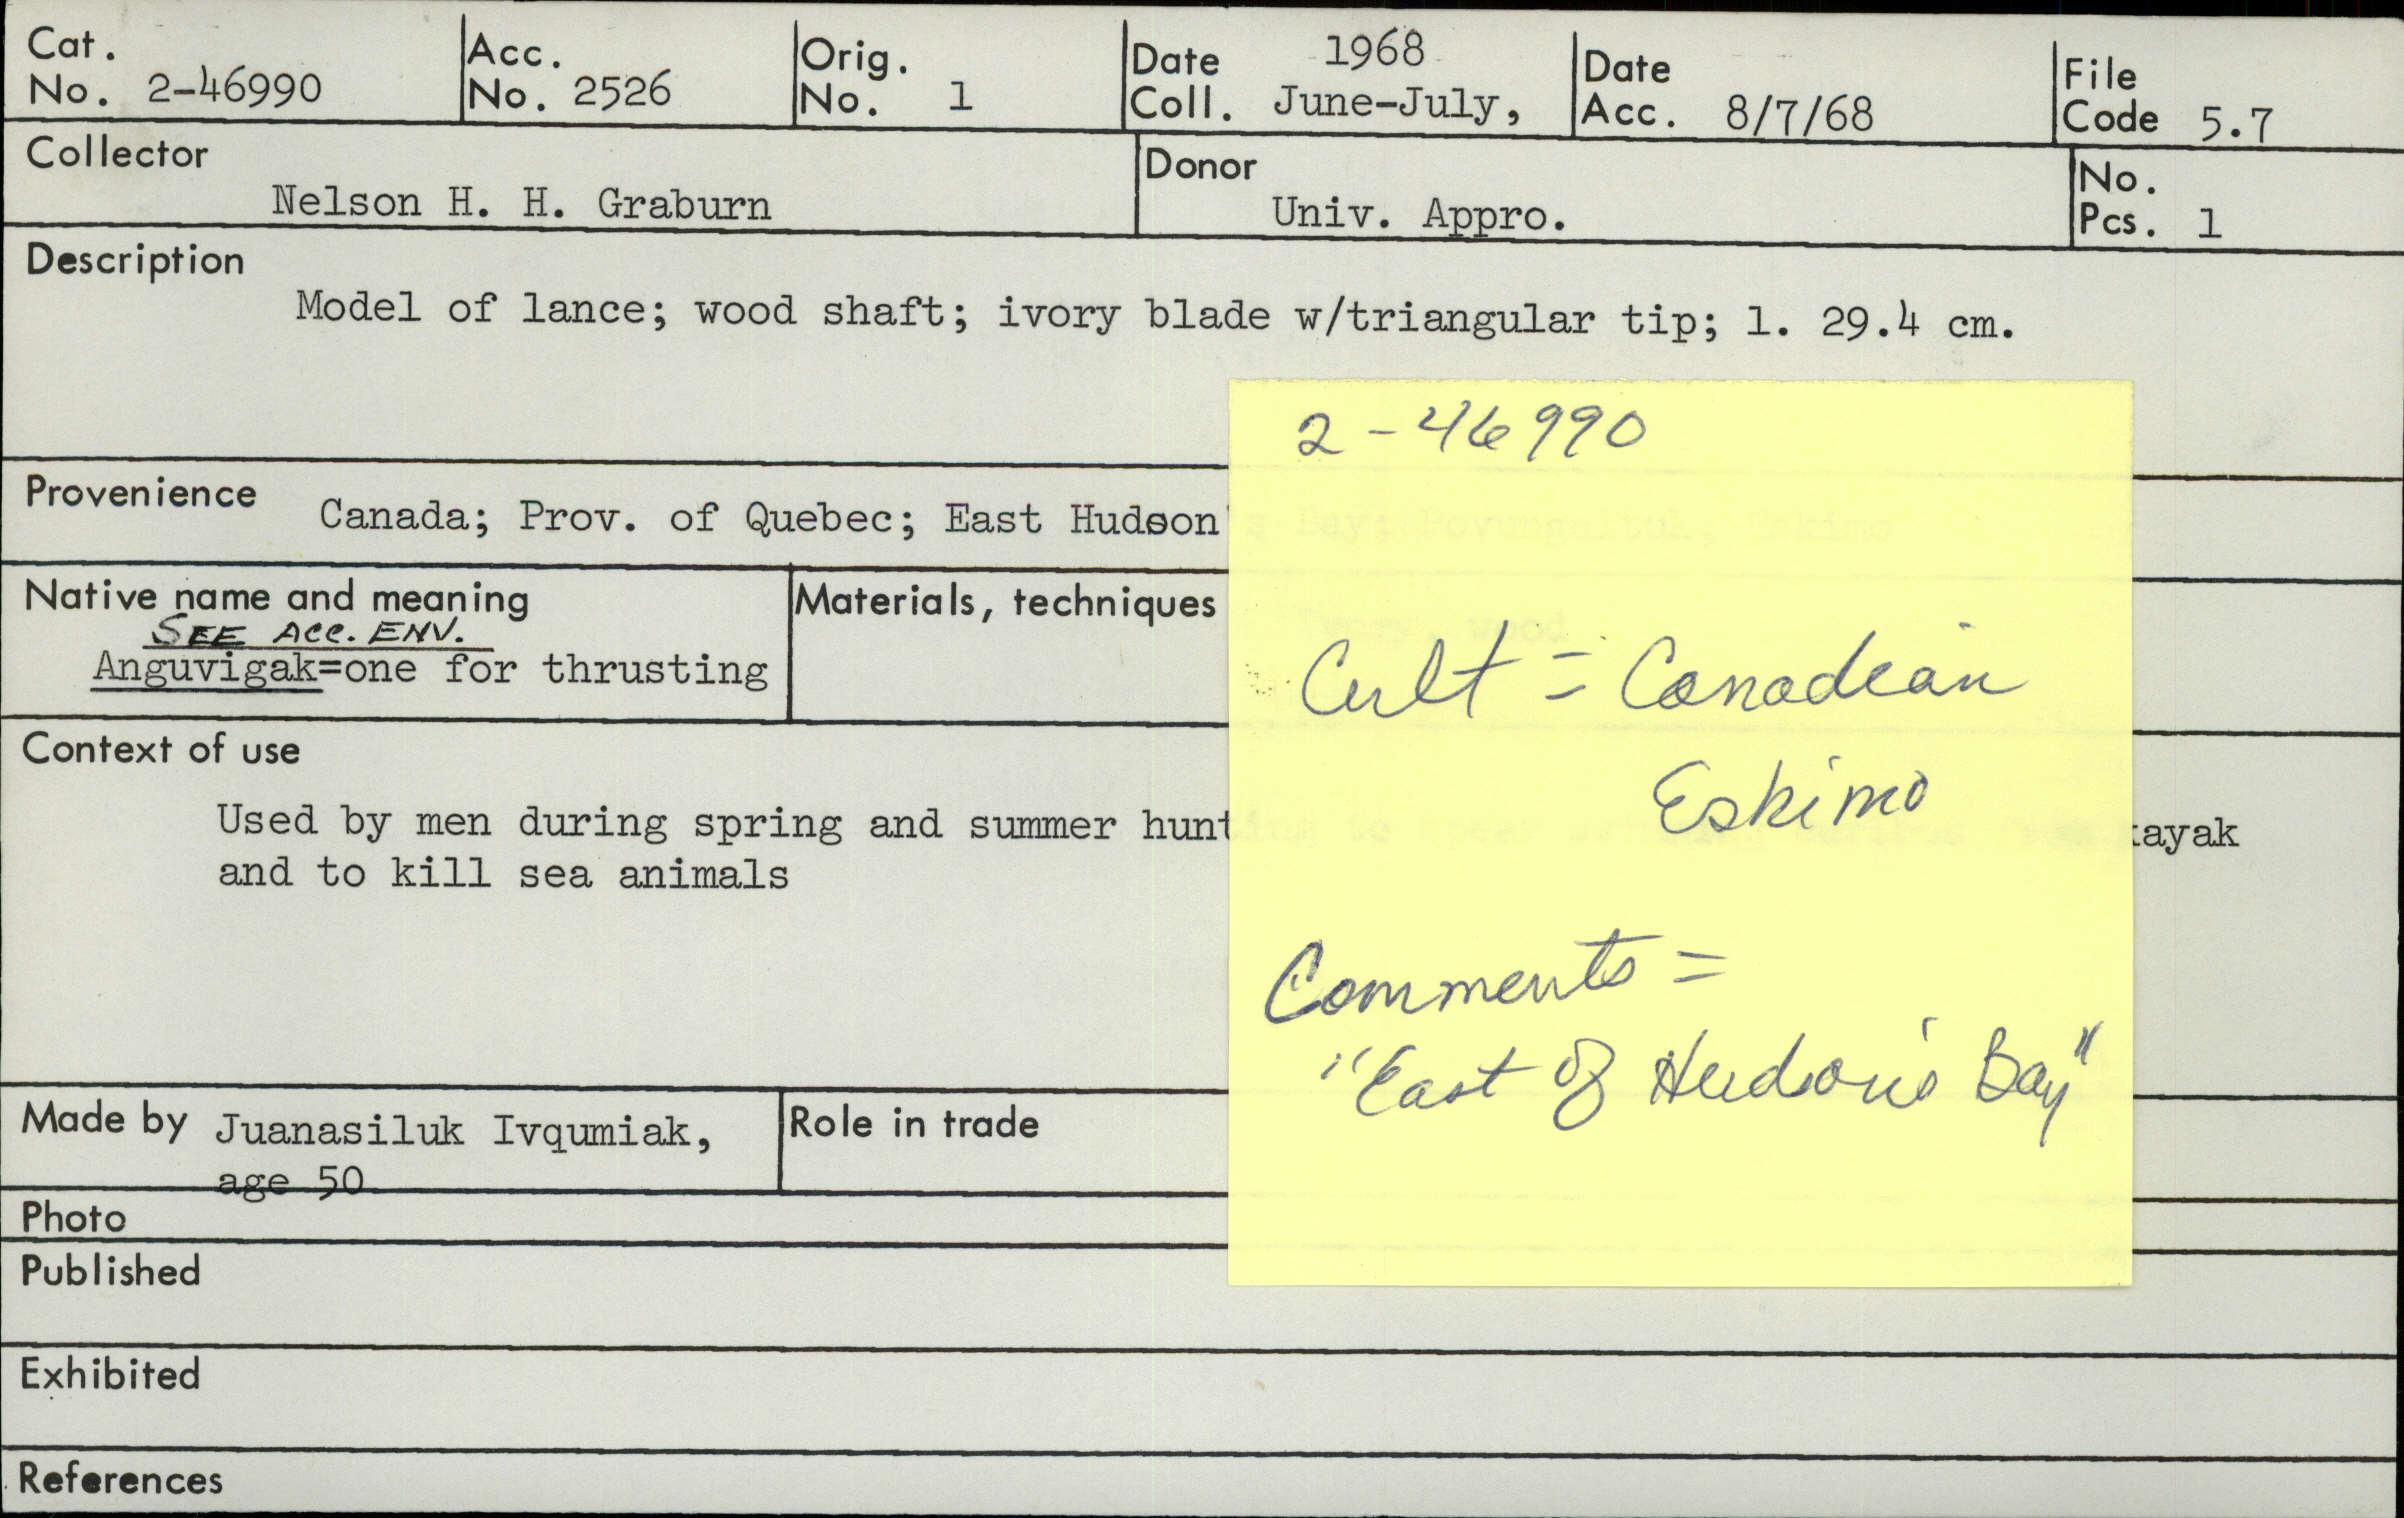 Cat. No. 2-46990
Acc. No. 2526
Orig. No. 1
Date Coll. 1968 June-July,
Date Acc. 8/7/68
File Code 5.7
Collector Nelson H. H. Graburn
Donor Univ. Appro.
No. Pcs. 1
Description
Model of lance; wood shaft; ivory blade w/triangular tip; l. 29.4 cm.
Provenience Canada; Prov. of Quebec; East Hudson's Bay; Povungnituk; Eskimo
Native name and meaning
SEE ACC. ENV.
Anguvigak=one for thrusting
Materials, techniques
Ivory, wood
Context of use
Used by men during spring and summer hunting to kayak
and to kill sea animals
Made by Juanasiluk Ivqumiak,
age 50
Role in trade
Photo
Published
Exhibited
References
2-46990
Cult = Canadian
Eskimo
Comments =
"East of Hudson's Bay"